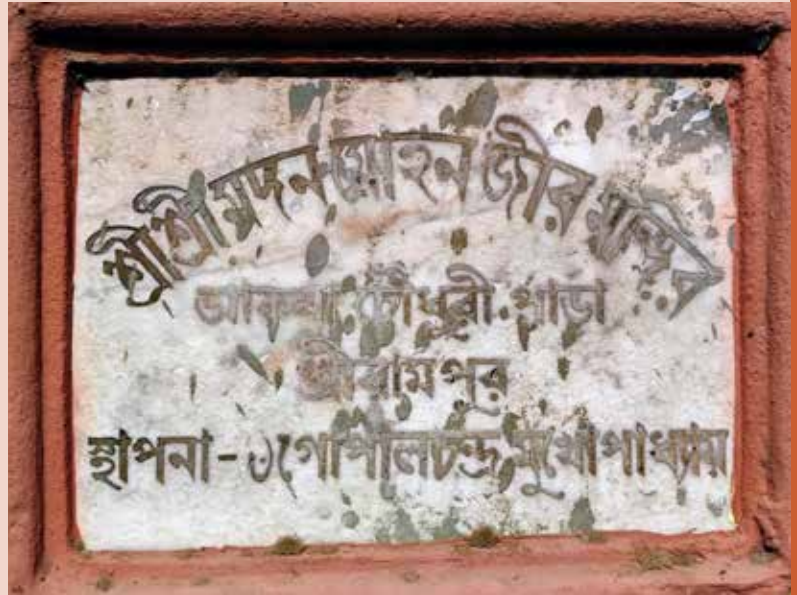 শ্রীশ্রীমদনমোহন জীর মন্দির
আকনা চৌধুরী পাড়া
শ্রীরামপুর
স্থাপনা-ঁগোপালচন্দ্র মুখোপাধ্যায়